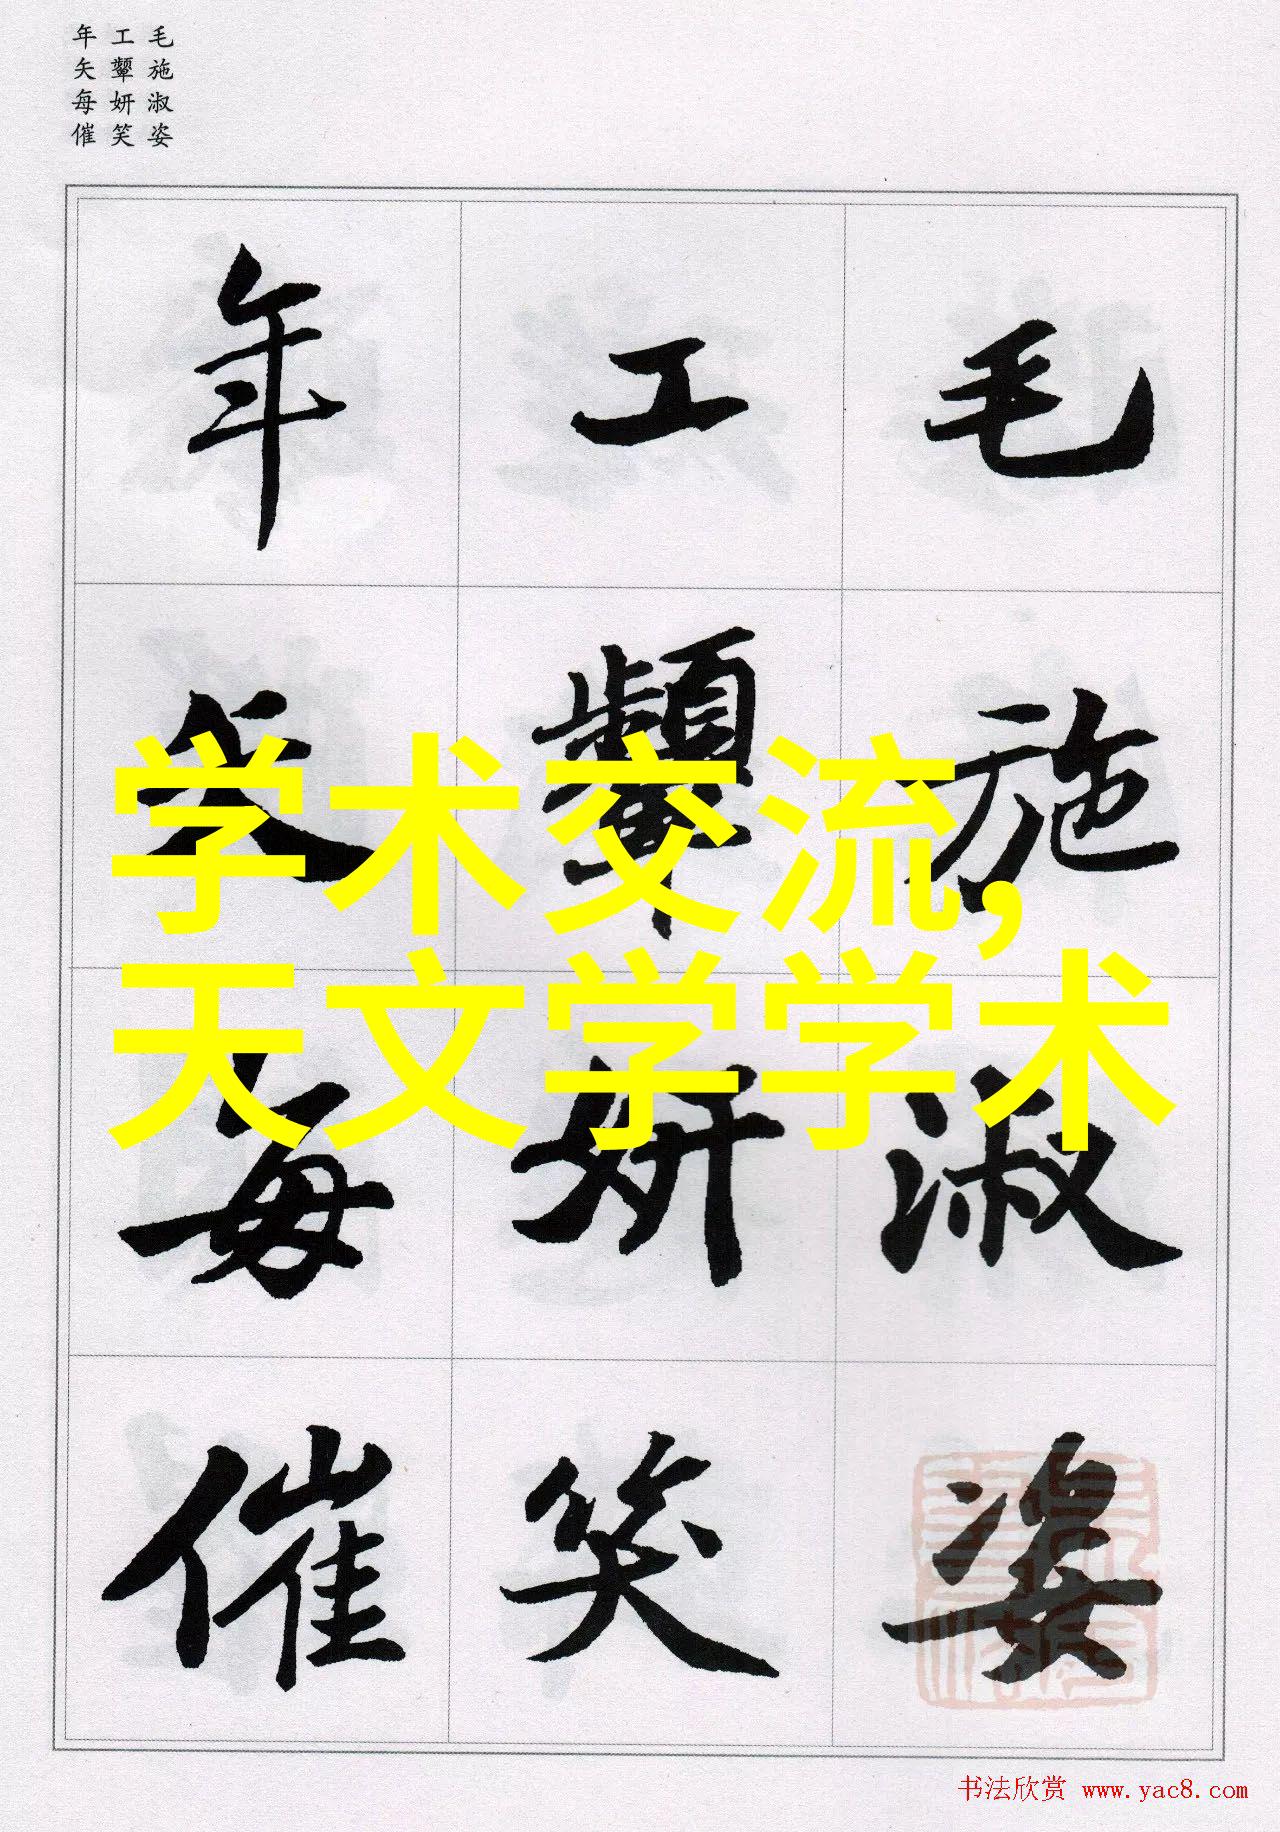 毛施淑姿
工颦妍笑
年矢每催
毛施淑姿
工颦妍笑
年矢每催
学术交流,
天文学学术
书法欣赏 www.yac8.com